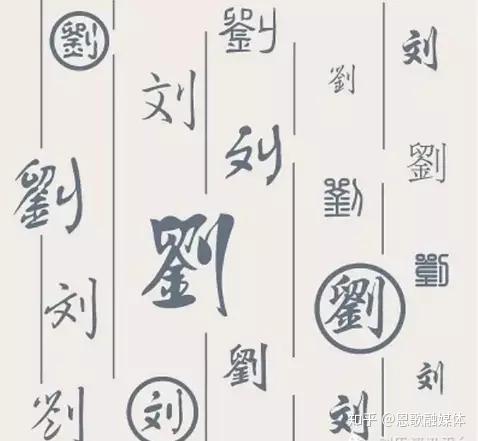 劉
劉
刘
劉
刘
刘
劉
劉
劉
劉
劉
劉
刘
劉
刘
劉
刘
刘
知乎 @恩歌融媒体